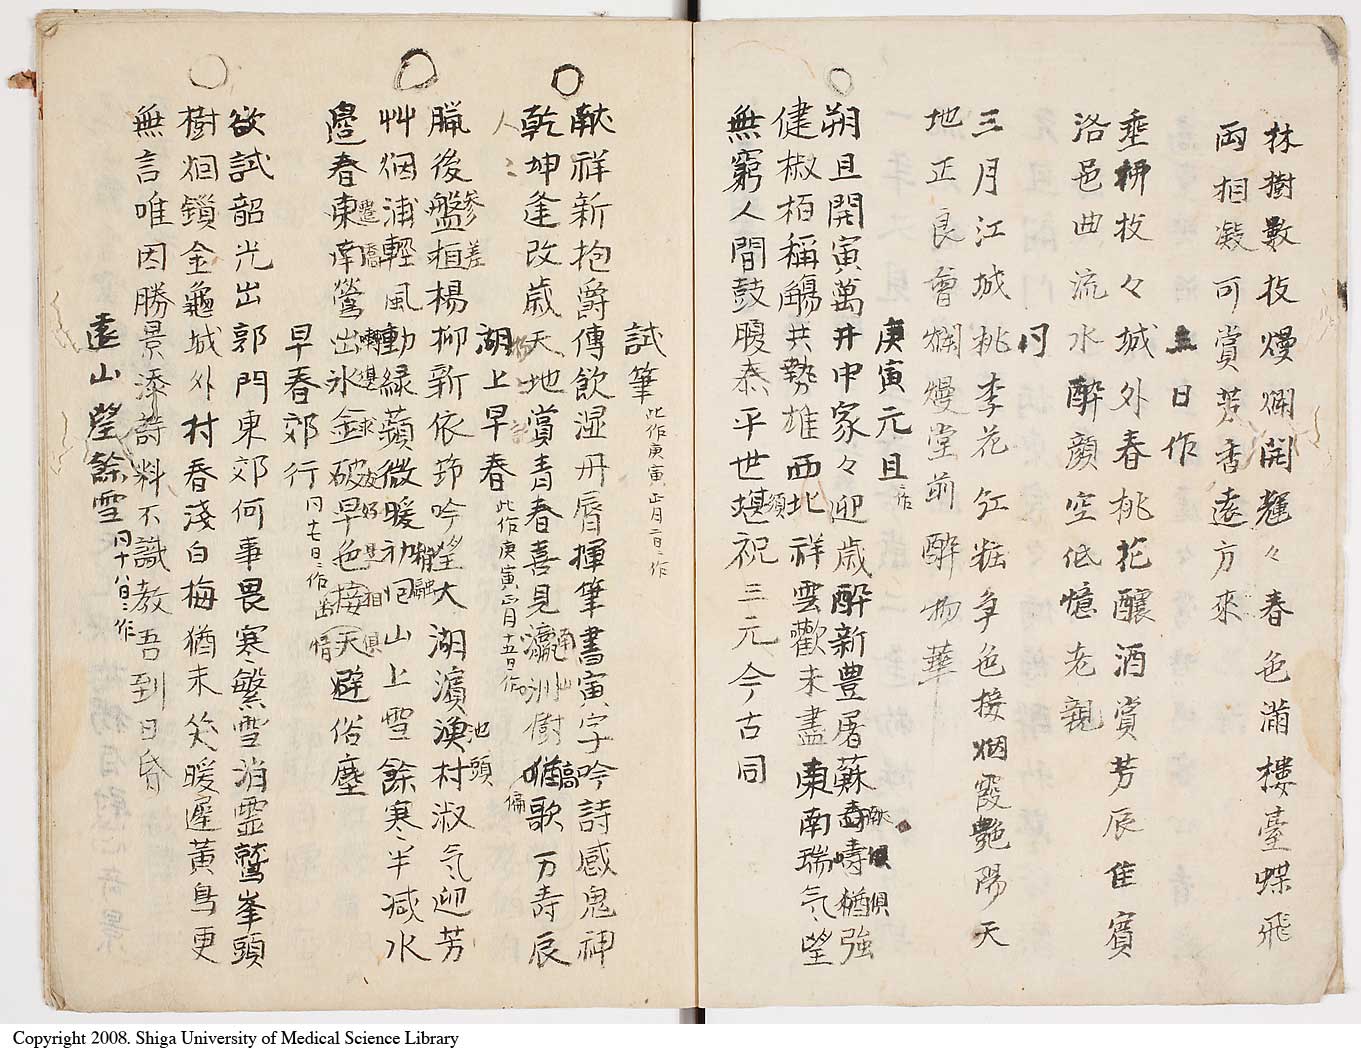 林樹數枝熳爛開輝々春色滿樓臺蝶飛
雨相凝可賞芳香遠方來
日作
垂柳枝々城外春桃花釀酒賞芳辰佳賓
洛邑曲流水醉顔空低憶老親
同
三月江城桃李花紅粧争色接烟霞艶陽天
地正良會爛熳堂前醉物華
庚寅元旦作
朔旦開寅萬井中家々迎歳醉新豊屠蘇壽疇猶強
健椒栢稱觴共勢雄西北祥雲歡未盡東南瑞气望
無窮人間鼓腹泰平世堪祝三元今古同
試筆 此作庚寅正月二日作
献祥新抱爵傳飲湿丹脣揮筆書寅字吟詩感鬼神
乾坤逢改歳天地賞青春喜見瀛洲樹猶歌万寿辰
湖上早春 此作庚寅正月十五日作
臘後盤桓楊柳新依筇吟望大湖濵漁村淑气迎芳
参差
池頭
艸烟浦輕風動緑蘋微暖初回山上雪餘寒半减水
邉春東南鶯出氷金破早色接天避俗塵
早春郊行 同十七日作
欲試韶光出郭門東郊何事畏寒繁雪消霊鷲峯頭
樹烟鎖金龜城外村春淺白梅猶未笑暖遲黄鳥更
無言唯因勝景添詩料不識教吾到日昏
遠山望餘雪 同十八日作
Copyright 2008. Shiga University of Medical Science Library